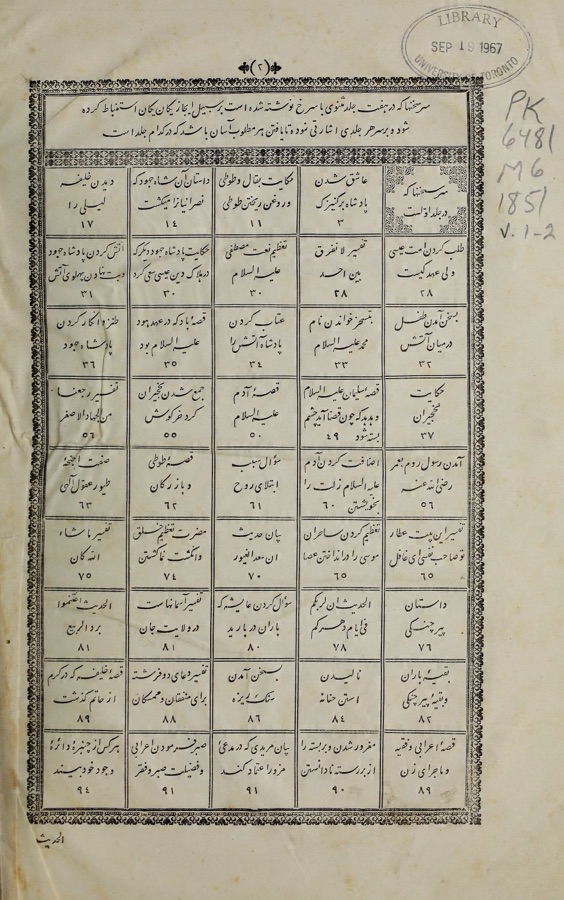 LIBRARY
SEP 19 1967
UNIVERSITY OF TORONTO
PK
6481
M6
1851
v. 1-2
(٢)
سرسخنها که در هفت جلد مثنوی با سرخ نوشته شده است بر سبیل ایجاز یکان یکان استنباط کرده
شود و بر سر هر جلدی اشارتی نمود تا یافتن هر مطلوب آسان باشد که در کدام جلد است
سرسخنها که
در جلد اول است
عاشق شدن
پادشاه بر کنیزک
٣
حکایت بقال و طوطی
و روغن ریختن طوطی
١١
داستان آن شاه جهود که
نصرانیانرا میکشت
١٤
دیدن خلیفه
لیلی را
١٧
طلب کردن امت عیسی
ولی عهد کیست
٢٨
تفسیر لا نفرق
بین احد
٢٨
تعظیم نعت مصطفی
علیه السلام
٣٠
حکایت پادشاه جهود دیگر که
در هلاک دین عیسی سعی کرد
٣٠
آتش کردن پادشاه جهود
وبت نهادن پهلوی آتش
٣١
بسخن آمدن طفل
در میان آتش
٣٢
بتسخر خواندن نام
محمد علیه السلام
٣٣
عتاب کردن
پادشاه آتش را
٣٤
قصهٔ باد که در عهد هود
علیه السلام بود
٣٥
طنز و انکار کردن
پادشاه جهود
٣٦
حکایت
نخجیران
٣٧
قصه سلیمان علیه السلام
و هدهد که چون قضا آید چشم
بسته شود ٤٩
قصهٔ آدم
علیه السلام
٥٠
جمع شدن نخجیران
کرد خرکوش
٥٥
تفسیر رجعنا
من الجهاد الاصغر
٥٦
آمدن رسول روم بعمر
رضی الله عنه
٥٦
اضافت کردن آدم
علیه السلام زلت را
بخویشتن ٦٠
سؤال سبب
ابتلای روح
٦١
قصهٔ طوطی
و بازرکان
٦٢
صفت اجنحهٔ
طیور عقول الهی
٦٣
تفسیر این بیت عطار
تو صاحب نفسی ای غافل
٦٥
تعظیم کردن ساحران
موسی را در انداختن عصا
٦٥
بیان حدیث
ان سعدا لغیور
٧٠
مضرت تعظیم خلق
وانکشت نما کشتن
٧٤
تفسیر ما شاء
الله کان
٧٥
داستان
پیر چنکی
٧٦
الحدیث ان لربکم
فی ایام دهرکم
٧٨
سؤال کردن عایشه که
باران در بارید
٨٠
تفسیر آسمانهاست
در ولایت جان
٨١
الحدیث اغتنموا
برد الربیع
٨١
بقیهٔ باران
و بقیهٔ پیر چنکی
٨٢
نالیدن
استن حنانه
٨٤
بسخن آمدن
سنک ریزه
٨٦
تفسیر دعای دو فرشته
برای منفقان و ممسکان
٨٨
قصهٔ خلیفه که در کرم
از حاتم کذشت
٨٩
قصهٔ اعرابی و فقیه
و ماجرای زن
٨٩
مغرور شدن و بربسته را
از بررسته نادانستن
٩٠
بیان مریدی که در مدعیٔ
مزور اعتماد کند
٩١
صبر فرمودن اعرابی
و فضیلت صبر و فقر
٩١
هرکس از چنبرهٔ دائرهٔ
وجود خود بیند
٩٤
الحدیث